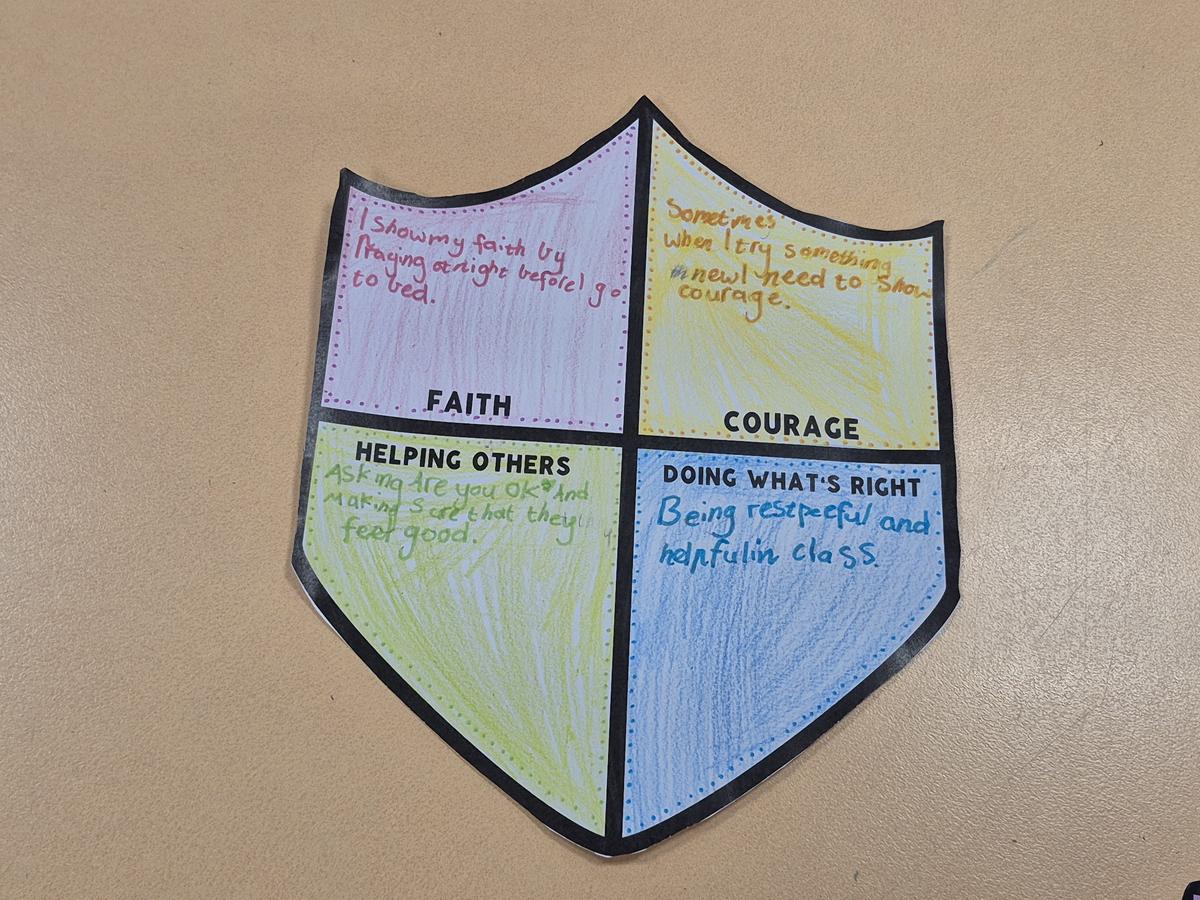 I Show my faith by
Praging at night before I go
to bed.
FAITH
Sometimes
when I try something
new I need to show
courage.
COURAGE
HELPING OTHERS
Asking Are you Ok? And
Making Sure that they
feel good.
DOING WHAT'S RIGHT
Being restpeeful and
helpful in class.